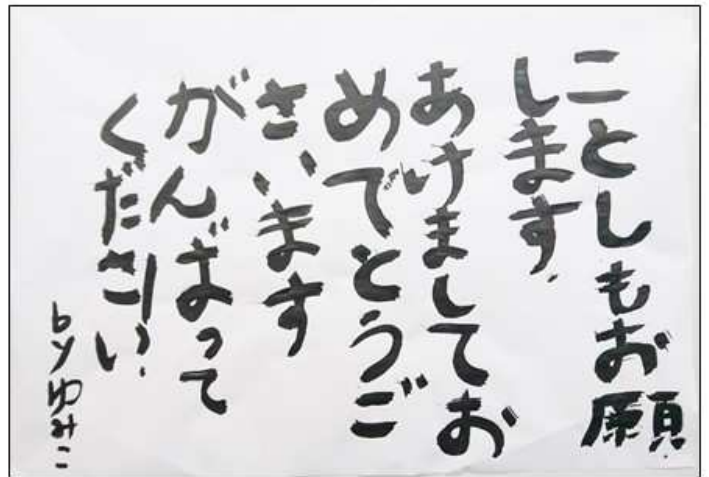 ことしもお願
します。
あけましてお
めでとうご
さいます
がんばって
ください。
byゆみこ